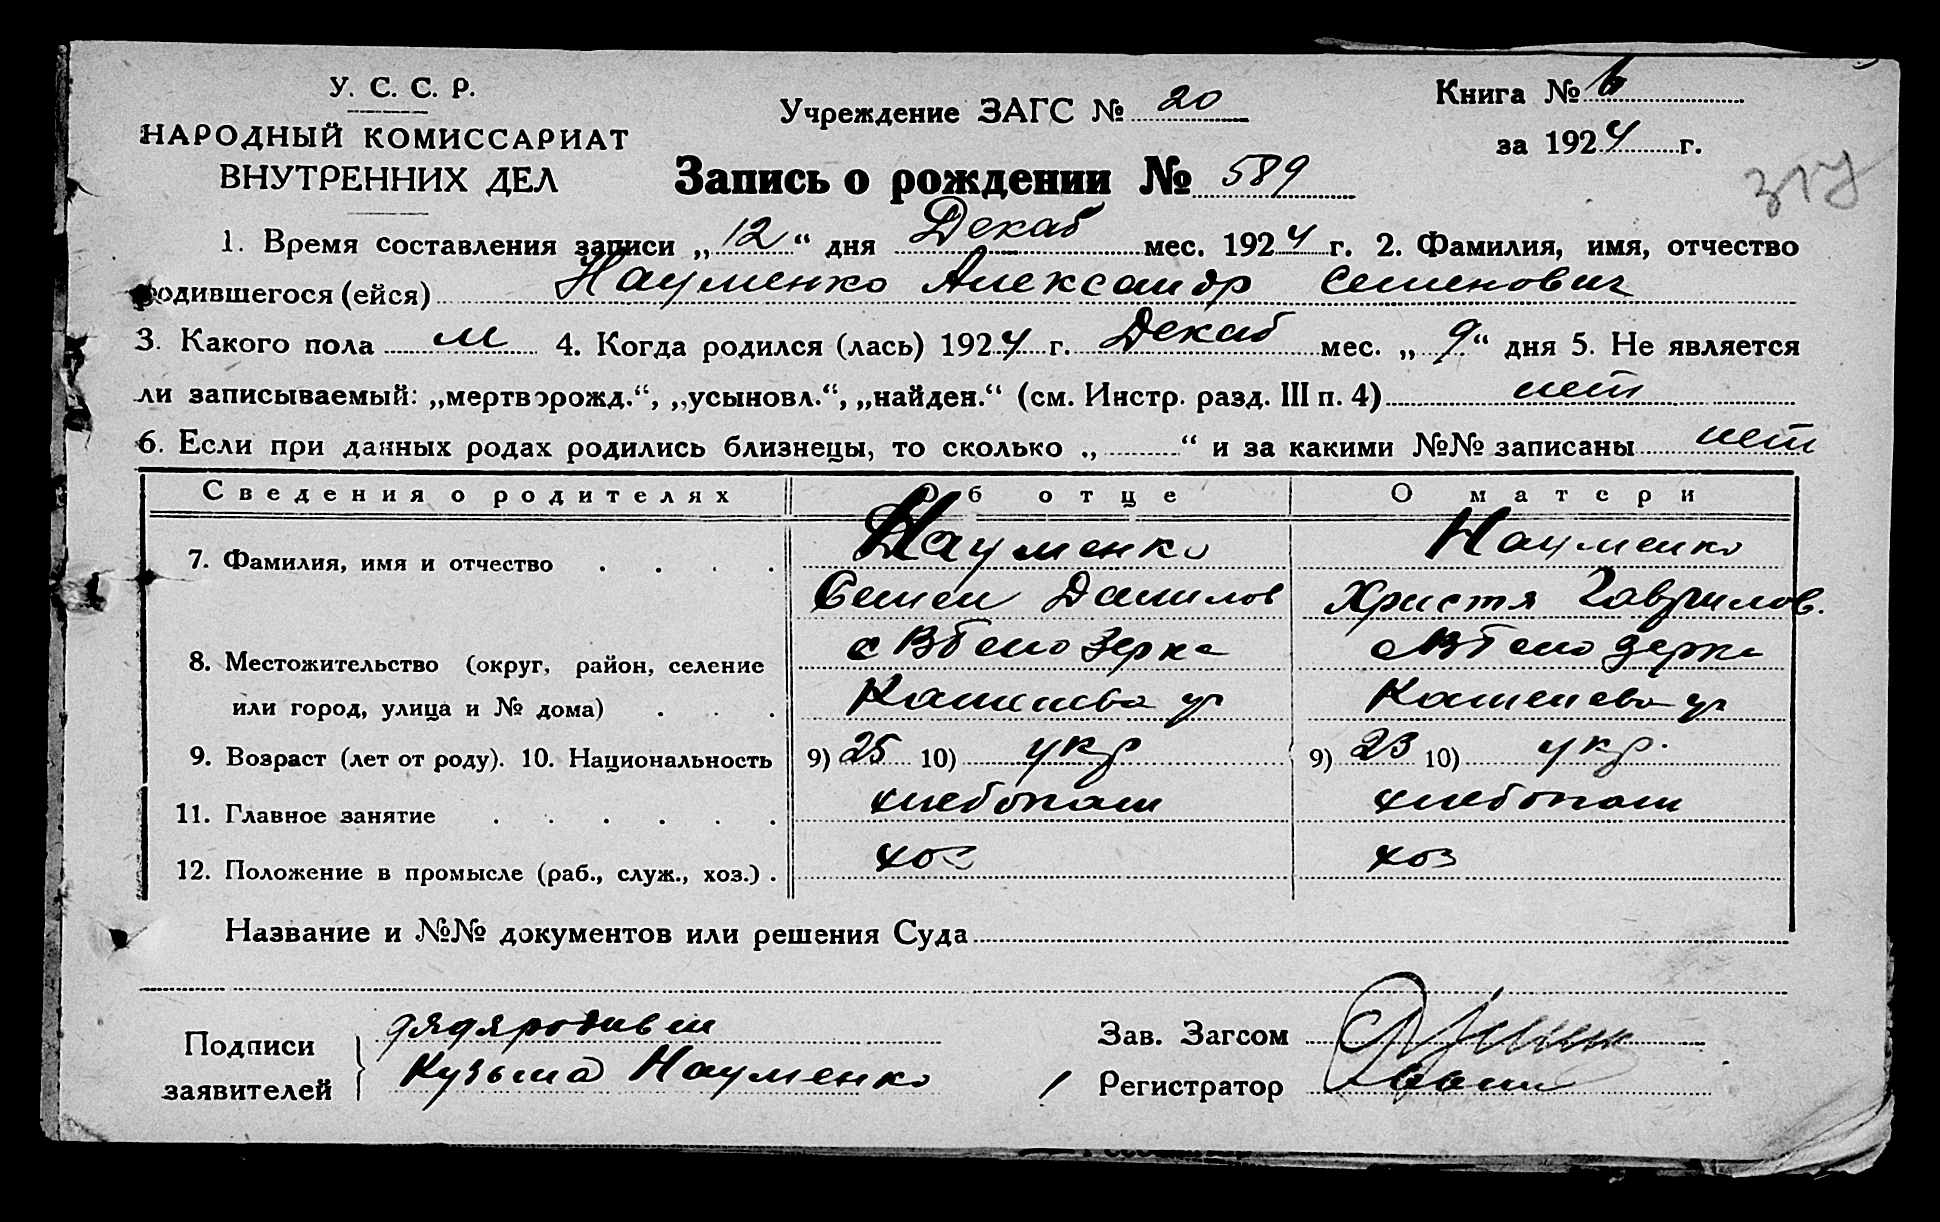 У. С. С. Р.
НАРОДНЫЙ КОМИССАРИАТ
ВНУТРЕННИХ ДЕЛ
Учреждение ЗАГС № 20
Книга № 6
за 1924 г.
Запись о рождении № 589
317
1. Время составления записи „12“ дня Декаб мес. 1924 г. 2. Фамилия, имя, отчество
родившегося (ейся) Науменко Александр Семенович
3. Какого пола м 4. Когда родился (лась) 1924 г. Декаб мес. „9“ дня 5. Не является
ли записываемый: „мертворожд.“, „усыновл.“, „найден.“ (см. Инстр. разд. III п. 4) нет
6. Если при данных родах родились близнецы, то сколько „ “ и за какими №№ записаны нет
Сведения о родителях Об отце О матери
7. Фамилия, имя и отчество Науменко Науменко
Семен Данилов Христя Гаврилов.
8. Местожительство (округ, район, селение с ВБелозерка с ВБелозерка
или город, улица и № дома) ул ул
9. Возраст (лет от роду). 10. Национальность 9) 25 10) укр 9) 23 10) укр.
11. Главное занятие хлебопаш хлебопаш
12. Положение в промысле (раб., служ., хоз.) хоз хоз
Название и №№ документов или решения Суда
Подписи заявителей
дядя
Кузьма Науменко
Зав. Загсом
Регистратор